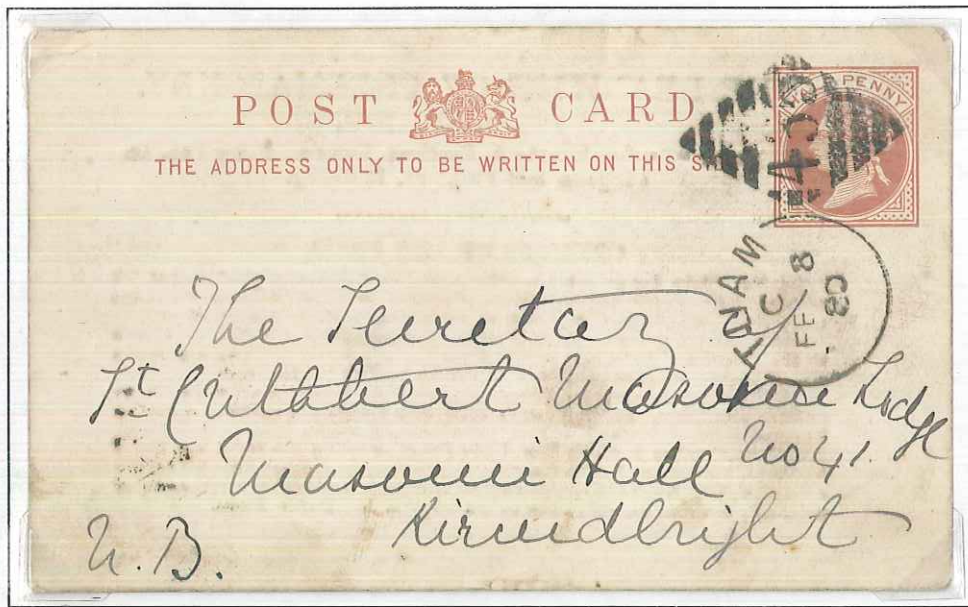 POST CARD
THE ADDRESS ONLY TO BE WRITTEN ON THIS
PENNY
TUAM
C
FE 8
80
The Secretary of
St Cuthbert Masonic Lodge
Masonic Hall No 41.
Kircudbright
N.B.